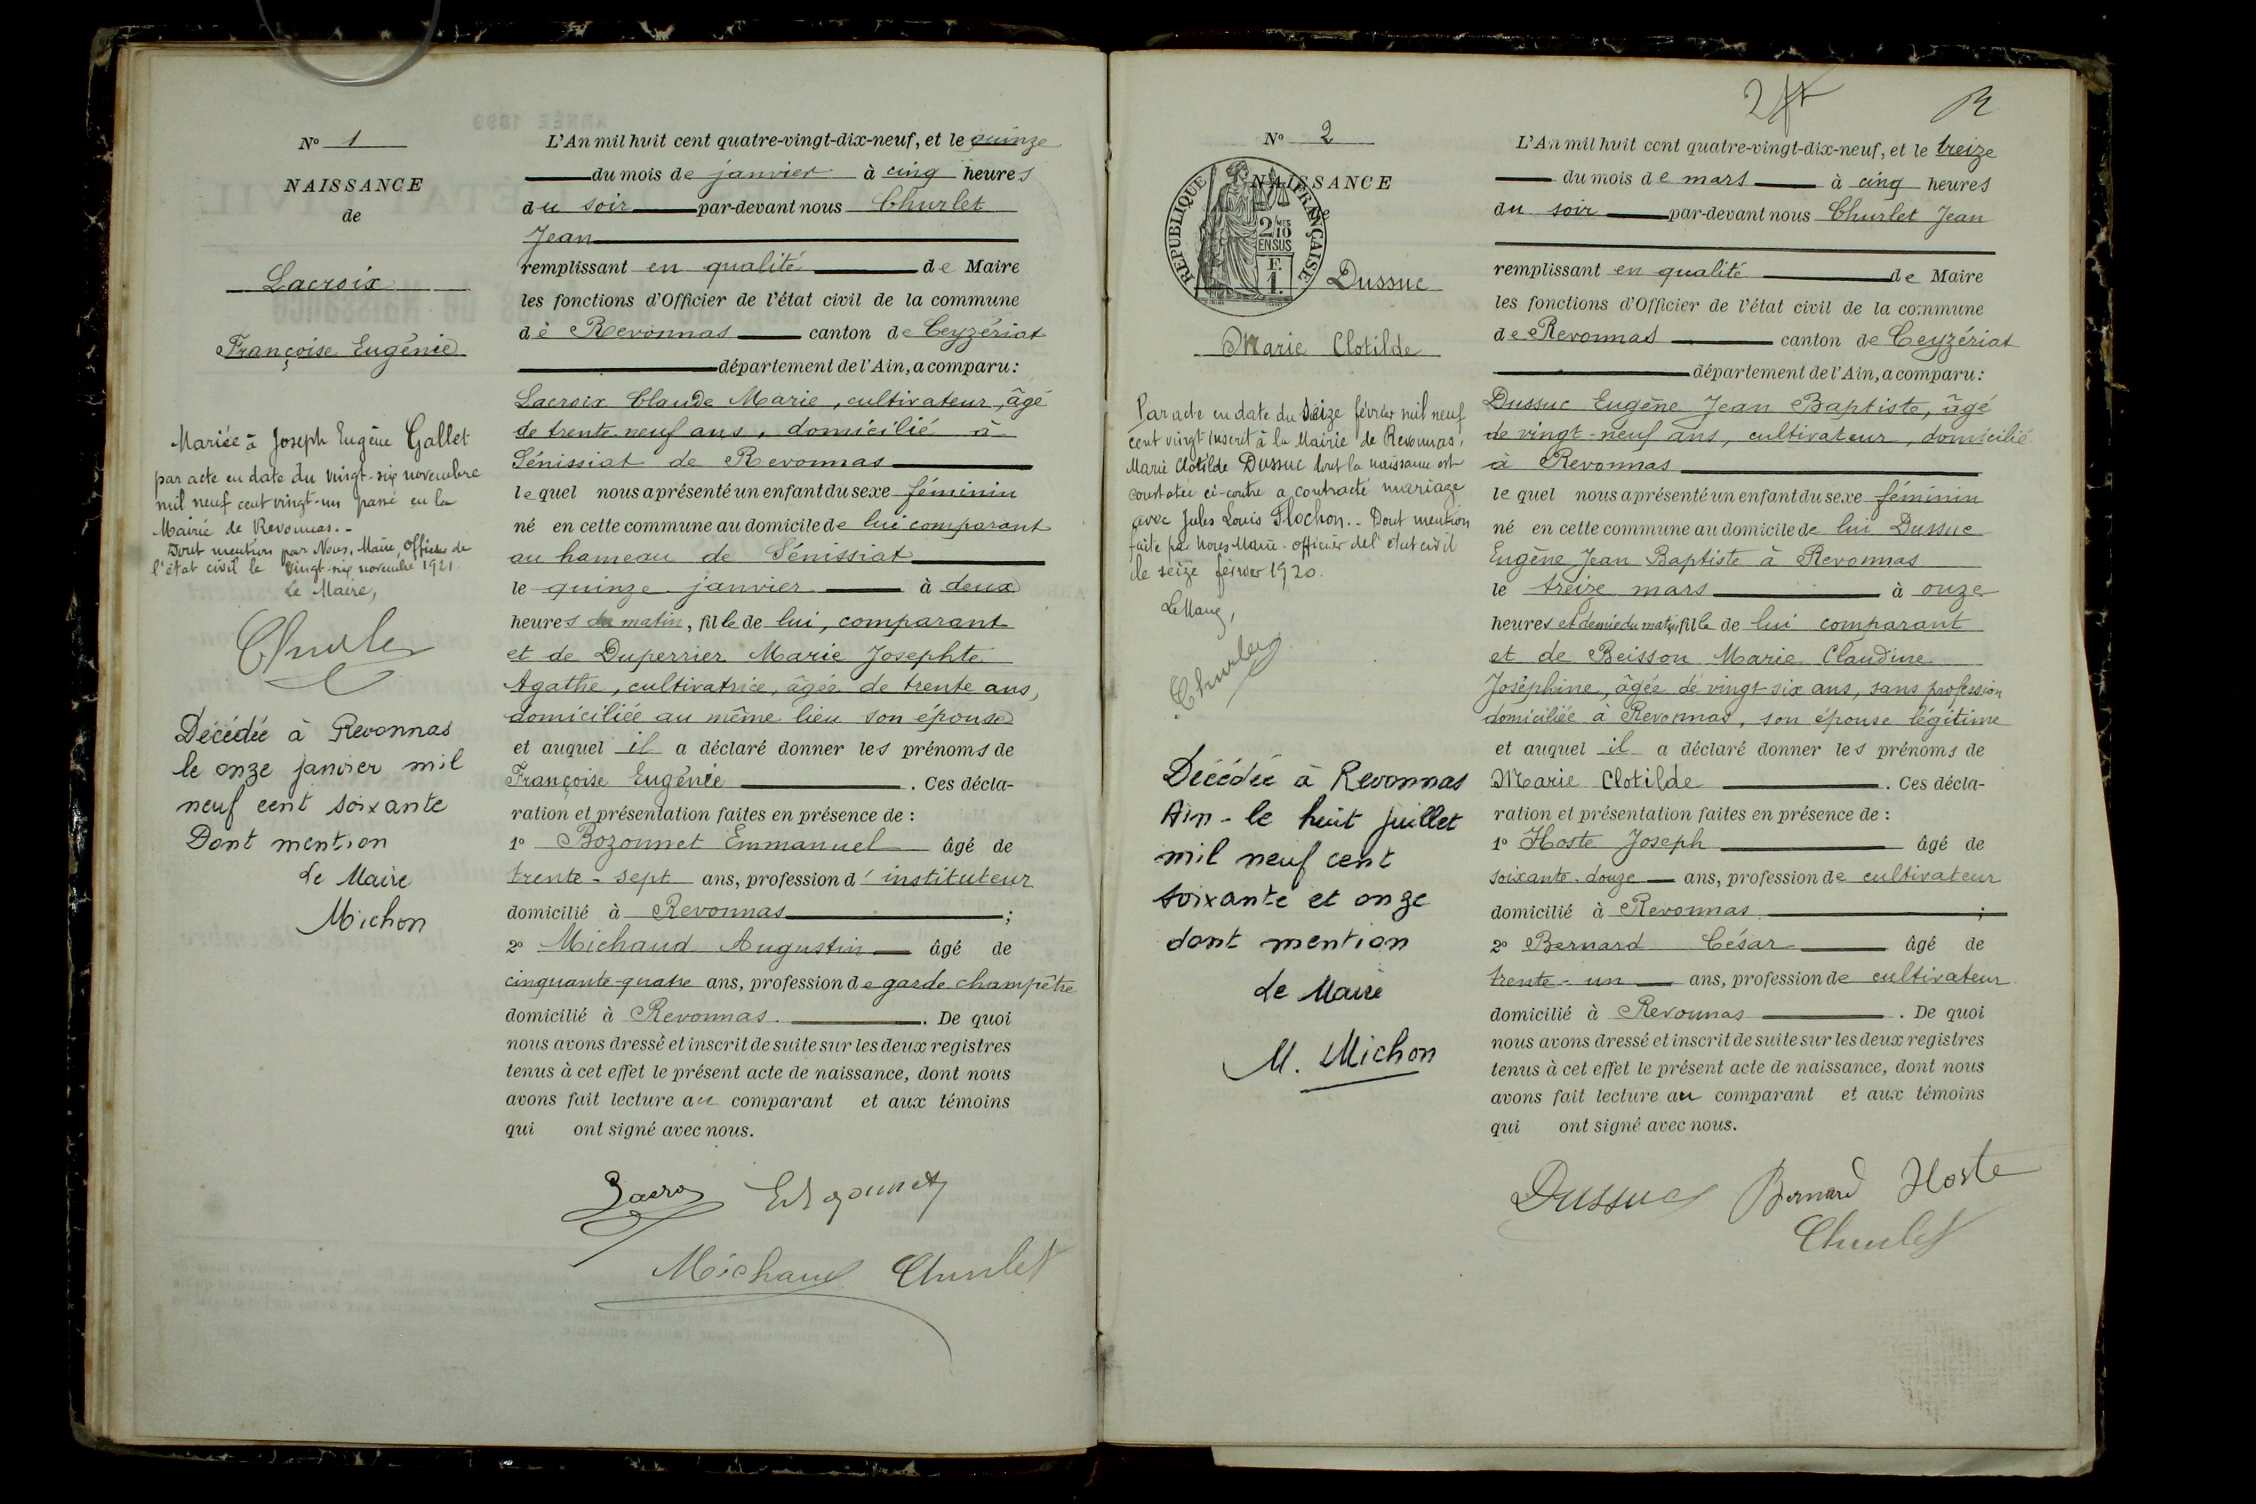 N° 1
NAISSANCE
de
Lacroix
Françoise Eugénie
Mariée à Joseph Eugène Gallet
par acte en date du vingt-six novembre
mil neuf cent vingt-un passé en la
Mairie de Revonnas.-
Dont mention par Nous, Maire, officier de
l'état civil le vingt-six novembre 1921
Le Maire,
Churlet
Décédée à Revonnas
le onze janvier mil
neuf cent soixante
Dont mention
Le Maire
Michon
L'An mil huit cent quatre-vingt-dix-neuf, et le quinze
du mois de janvier à cinq heures
du soir par-devant nous Churlet
Jean
remplissant en qualité de Maire
les fonctions d'Officier de l'état civil de la commune
de Revonnas canton de Ceyzériat
département de l'Ain, a comparu :
Lacroix Claude Marie, cultivateur, âgé
de trente-neuf ans, domicilié à
Sénissiat de Revonnas
lequel nous a présenté un enfant du sexe féminin
né en cette commune au domicile de lui comparant
au hameau de Sénissiat
le quinze janvier à deux
heures du matin, fille de lui, comparant
et de Duperrier Marie Josephte
Agathe, cultivatrice, âgée de trente ans,
domiciliée au même lieu son épouse
et auquel il a déclaré donner les prénoms de
Françoise Eugénie . Ces décla-
ration et présentation faites en présence de :
1° Bozonnet Emmanuel âgé de
trente-sept ans, profession d'instituteur
domicilié à Revonnas ;
2° Michaud Augustin âgé de
cinquante-quatre ans, profession de garde champêtre
domicilié à Revonnas. . De quoi
nous avons dressé et inscrit de suite sur les deux registres
tenus à cet effet le présent acte de naissance, dont nous
avons fait lecture au comparant et aux témoins
qui ont signé avec nous.
Lacroix E Bozonnet
Michaud Churlet
N° 2
NAISSANCE
de
RÉPUBLIQUE FRANÇAISE
2/10
EN SUS
Dussuc
Marie Clotilde
Par acte en date du seize février mil neuf
cent vingt inscrit à la Mairie de Revonnas,
Marie Clotilde Dussuc dont la naissance est
constatée ci-contre a contracté mariage
avec Jules Louis Flochon.- Dont mention
faite par Nous Maire officier de l'état civil
le seize février 1920.
Le Maire,
Churlet
Décédée à Revonnas
Ain - le huit juillet
mil neuf cent
soixante et onze
dont mention
Le Maire
M. Michon
L'An mil huit cent quatre-vingt-dix-neuf, et le treize
du mois de mars à cinq heures
du soir par-devant nous Churlet Jean
remplissant en qualité de Maire
les fonctions d'Officier de l'état civil de la commune
de Revonnas canton de Ceyzériat
département de l'Ain, a comparu :
Dussuc Eugène Jean Baptiste, âgé
de vingt-neuf ans, cultivateur, domicilié
à Revonnas
lequel nous a présenté un enfant du sexe féminin
né en cette commune au domicile de lui Dussuc
Eugène Jean Baptiste à Revonnas
le treize mars à onze
heures et demie du matin, fille de lui comparant
et de Beisson Marie Claudine
Joséphine, âgée de vingt six ans, sans profession
domiciliée à Revonnas, son épouse légitime
et auquel il a déclaré donner les prénoms de
Marie Clotilde . Ces décla-
ration et présentation faites en présence de :
1° Hoste Joseph âgé de
soixante-douze ans, profession de cultivateur
domicilié à Revonnas ;
2° Bernard César âgé de
trente-un ans, profession de cultivateur
domicilié à Revonnas . De quoi
nous avons dressé et inscrit de suite sur les deux registres
tenus à cet effet le présent acte de naissance, dont nous
avons fait lecture au comparant et aux témoins
qui ont signé avec nous.
Dussuc Bernard Hoste
Churlet